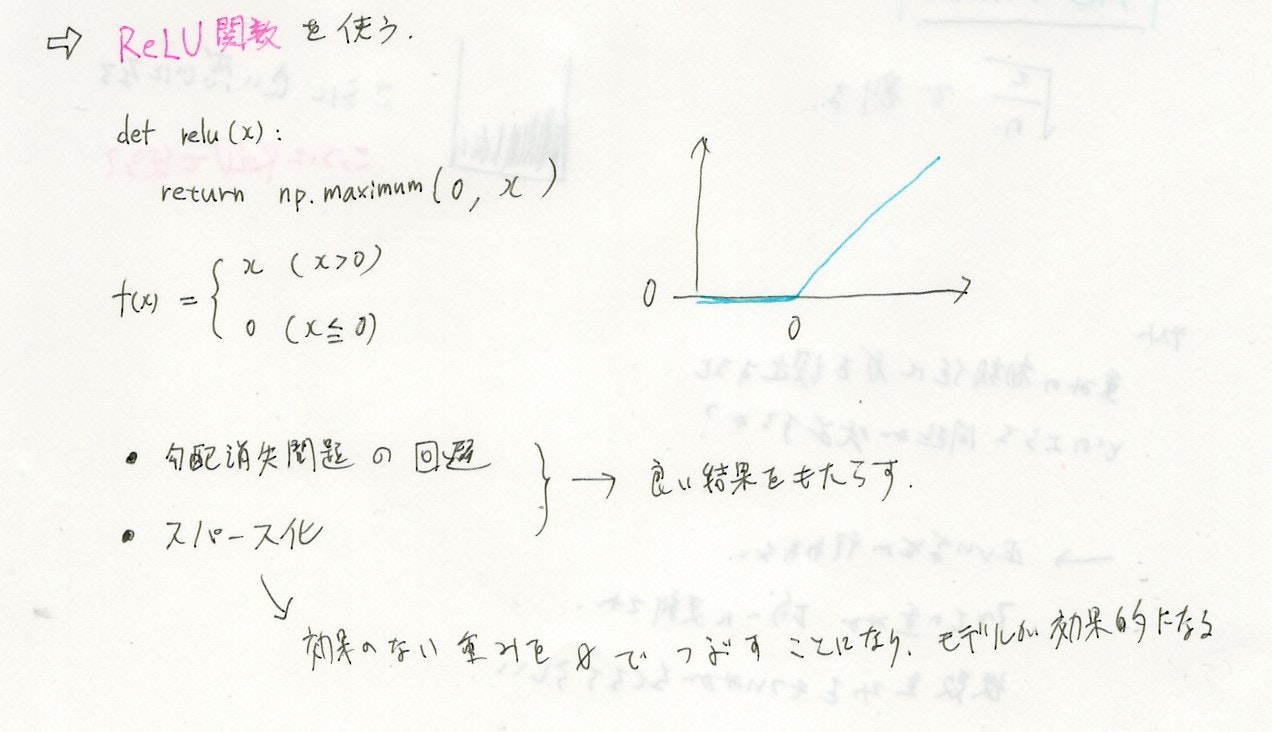 ⇨ ReLU関数 を使う.
def relu(x):
return np.maximum(0, x)
f(x) = { x (x>0)
0 (x≦0)
0
0
• 勾配消失問題 の 回避
• スパース化
} → 良い結果をもたらす.
↘ 効果のない 重みを 0 で つぶす ことになり、モデルが 効果的になる